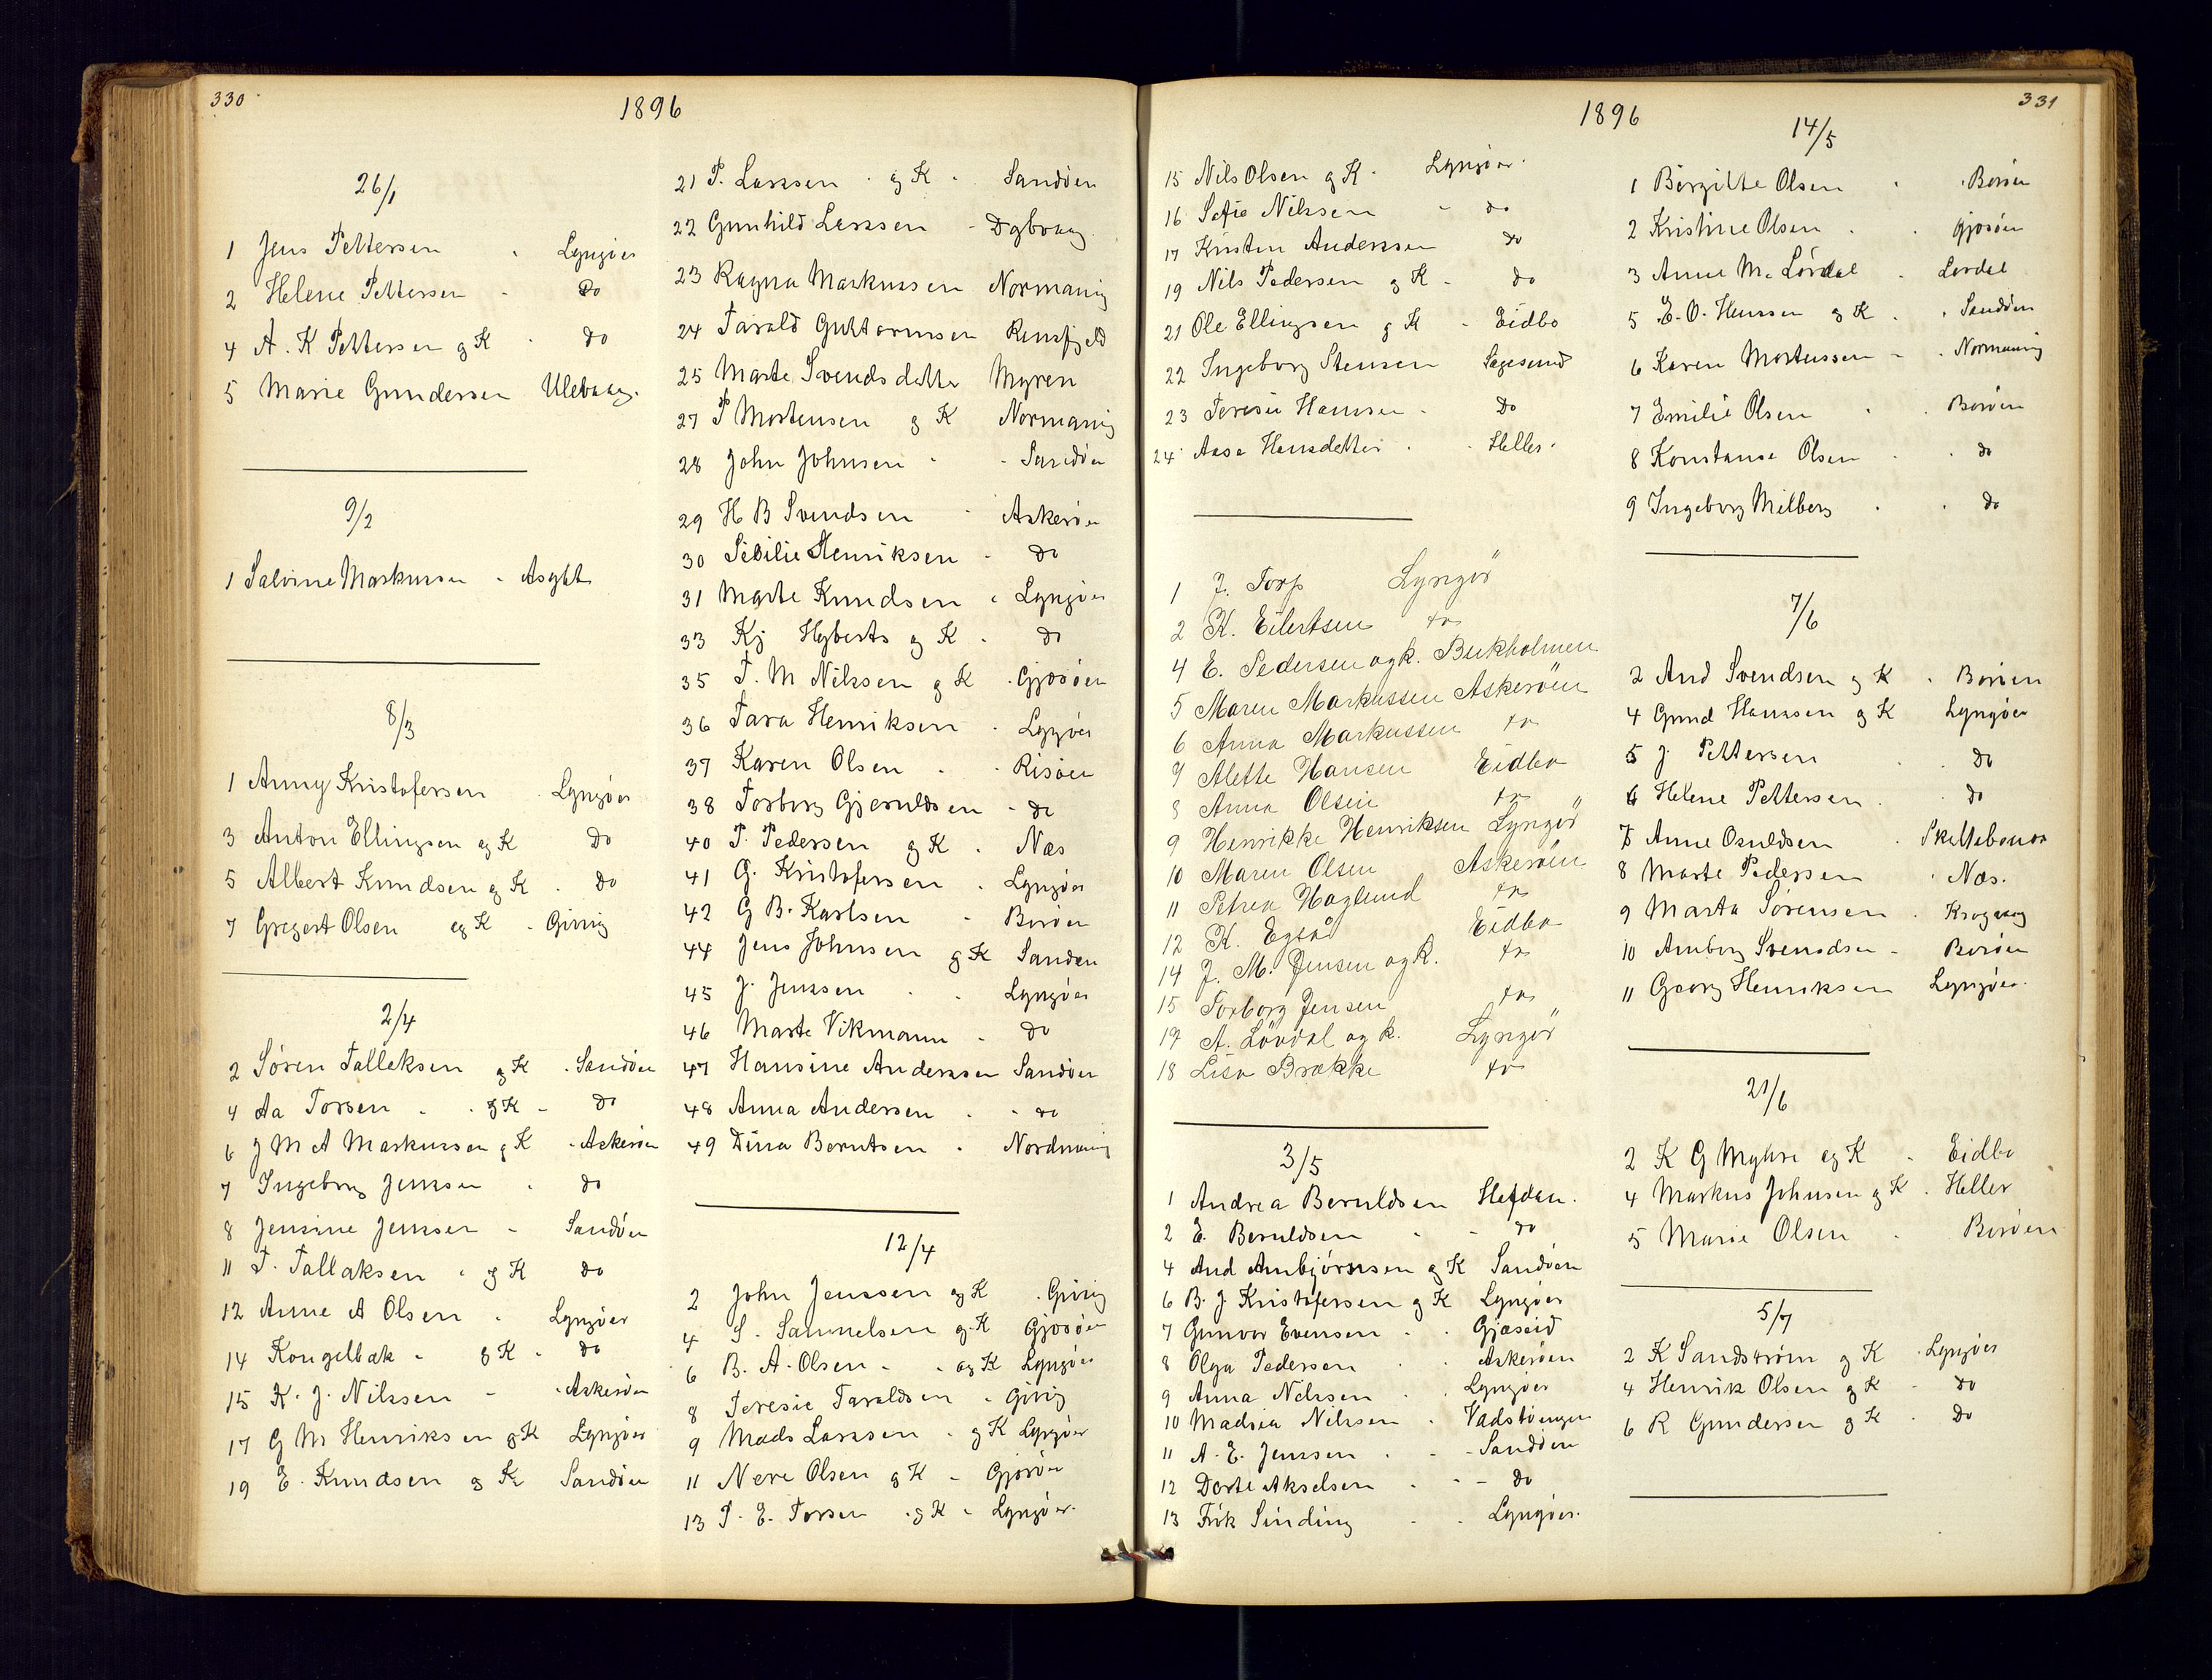 330
1896
26/1
1 Jens Pettersen - Lyngöer
2 Helene Pettersen - Do
4 A. K Pettersen og K - do
5 Marie Gundersen Ulevaag.
9/2
1 Salvine Markussen -
8/3
1 Anny Kristofersen - Lyngöer
3 Anton Ellingsen og K do
5 Albert Knudsen og K - do
7 Gregert Olsen og K - Giving
2/4
2 Sören Talleksen og K - Sandöen
4 Aa Torsen - - og K - do
6 J M A Markussen og K - Askeröen
7 Ingeborg Jensen - do
8 Jensine Jensen - Sandöen
11 T. Tallaksen - og K do
12 Anne A Olsen - Lyngöer
14 Kongelbæk - og K - do
15 K. J. Nilssen - - Askeröen
17 G M Henriksen og K Lyngöer
19 E. Knudsen og K Sandöen
21 P. Larssen - og K - Sandöen
22 Gunhild Larssen - Dybvaag
23 Ragna Markussen Normanvig
24 Tarald Guttormsen Rensfjeld
25 Marte Svendsdatter Myren
27 P Mortensen og K Normanvig
28 John Johnsen - - Sandöen
29 H B Svendsen - Askeröen
30 Sesilie Henriksen - do
31 Marte Knudsen - Lyngöer
33 Kj Hyberts og K - do
35 T. M Nilssen og K - Gjæsöen
36 Tara Henriksen - Lyngöer
37 Karen Olsen - - Risöen
38 Torborg Gjeruldsen - do
40 P. Pedersen og K - Næs
41 G. Kristofersen - Lyngöer
42 G B. Karlsen - Boröen
44 Jens Johnsen og K Sandöen
45 J. Jenssen - - Lyngöer
46 Marte Vikmann - do
47 Hansine Anderssen Sandöen
48 Anna Andersen - - do
49 Dina Berntsen - Nordmanvig
12/4
2 John Jenssen og K - Giving
4 S. Samuelsen og K Gjæsöen
6 B. A. Olsen - - og K Lyngöer
8 Teresie Taraldsen - Giving
9 Mads Larssen - og K Lyngöer
11 Nere Olsen og K - Gjæsöen
13 P. E. Torsen - og K - Lyngöer.
331
1896
15 Nils Olsen og K - Lyngöer.
16 Sofie Nilssen - do
17 Kristen Anderssen do
19 Nils Pedersen og K - do
21 Ole Ellingsen og K - Eidbo
22 Ingeborg Stensen Sagesund
23 Teresie Hansen - Do
24 Aase Hansdatter - - Heller.
1 J. Torp Lyngör
2 K. Eilertsen do
4 E. Pedersen og k. Bukholmen
5 Maren Markussen Askeröen
6 Anna Markussen do
7 Alette Hansen Eidbo
8 Anna Olsen do
9 Henrikke Henriksen Lyngör
10 Maren Olsen Askeröen
11 Petrea Haglund do
12 K. Egså Eidbo
14 J. M. Jensen og k. do
15 Torborg Jensen do
17 A. Lövdal og k. Lyngör
18 Lisa Brække do
3/5
1 Andrea Beruldsen
2 E. Beruldsen - - do
4 And Arnbjörnsen og K Sandöen
6 B. J. Kristofersen og K Lyngöer
7 Gunvor Evensen - - Gjæseid
8 Olga Pedersen - - Askeröen
9 Anna Nilssen - - Lyngöer
10 Madsia Nilssen - Vadstvangen
11 A. E. Jenssen - - Sandöen
12 Dorte Akselsen - - - do
13 Frök Sinding - - Lyngöer.
14/5
1 Börgitte Olsen - - Boröen
2 Kristine Olsen - - Gjæsöen
3 Anne M. Lövdal - Lövdal
5 E. O. Henssen og K - - Sandöen
6 Karen Mortenssen - - Normanvig
7 Emilie Olsen - - Boröen
8 Konstanse Olsen - - do
9 Ingeborg Milberg - - do
7/6
2 And Svendsen og K - Boröen
4 Gund Hanssen og K Lyngöer
5 J. Pettersen - do
6 Helene Pettersen - - do
7 Anne Osuldsen -
8 Marte Pedersen - Næs.
9 Marta Sörensen - Krogvaag
10 Arnborg Svendsen - Boröen
11 Georg Henriksen Lyngöer.
21/6
2 K G Myhre og K - Eidbo
4 Markus Johnsen og K - Heller
5 Marie Olsen - Boröen
5/7
2 K Sandström og K - Lyngöer
4 Henrik Olsen og K - do
6 R Gundersen og K - Do